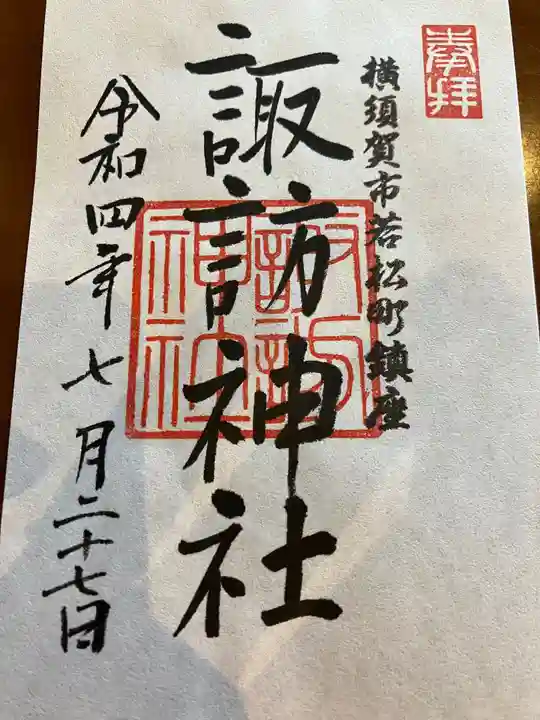 奉拝
横須賀市若松町鎮座
諏訪神社
諏訪神社
令和四年七月二十七日